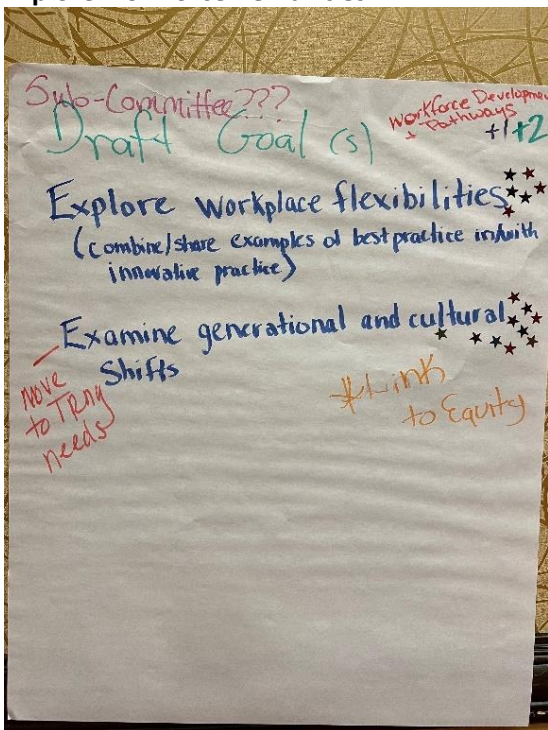 Sub-Committee???
Workforce Development
+ Pathways
Draft Goal (s)
+1 +2
Explore workplace flexibilities
(combine/share examples of best practice in/with
innovative practice)
Examine generational and cultural
Shifts
move
to TRng
needs
*Link
to Equity